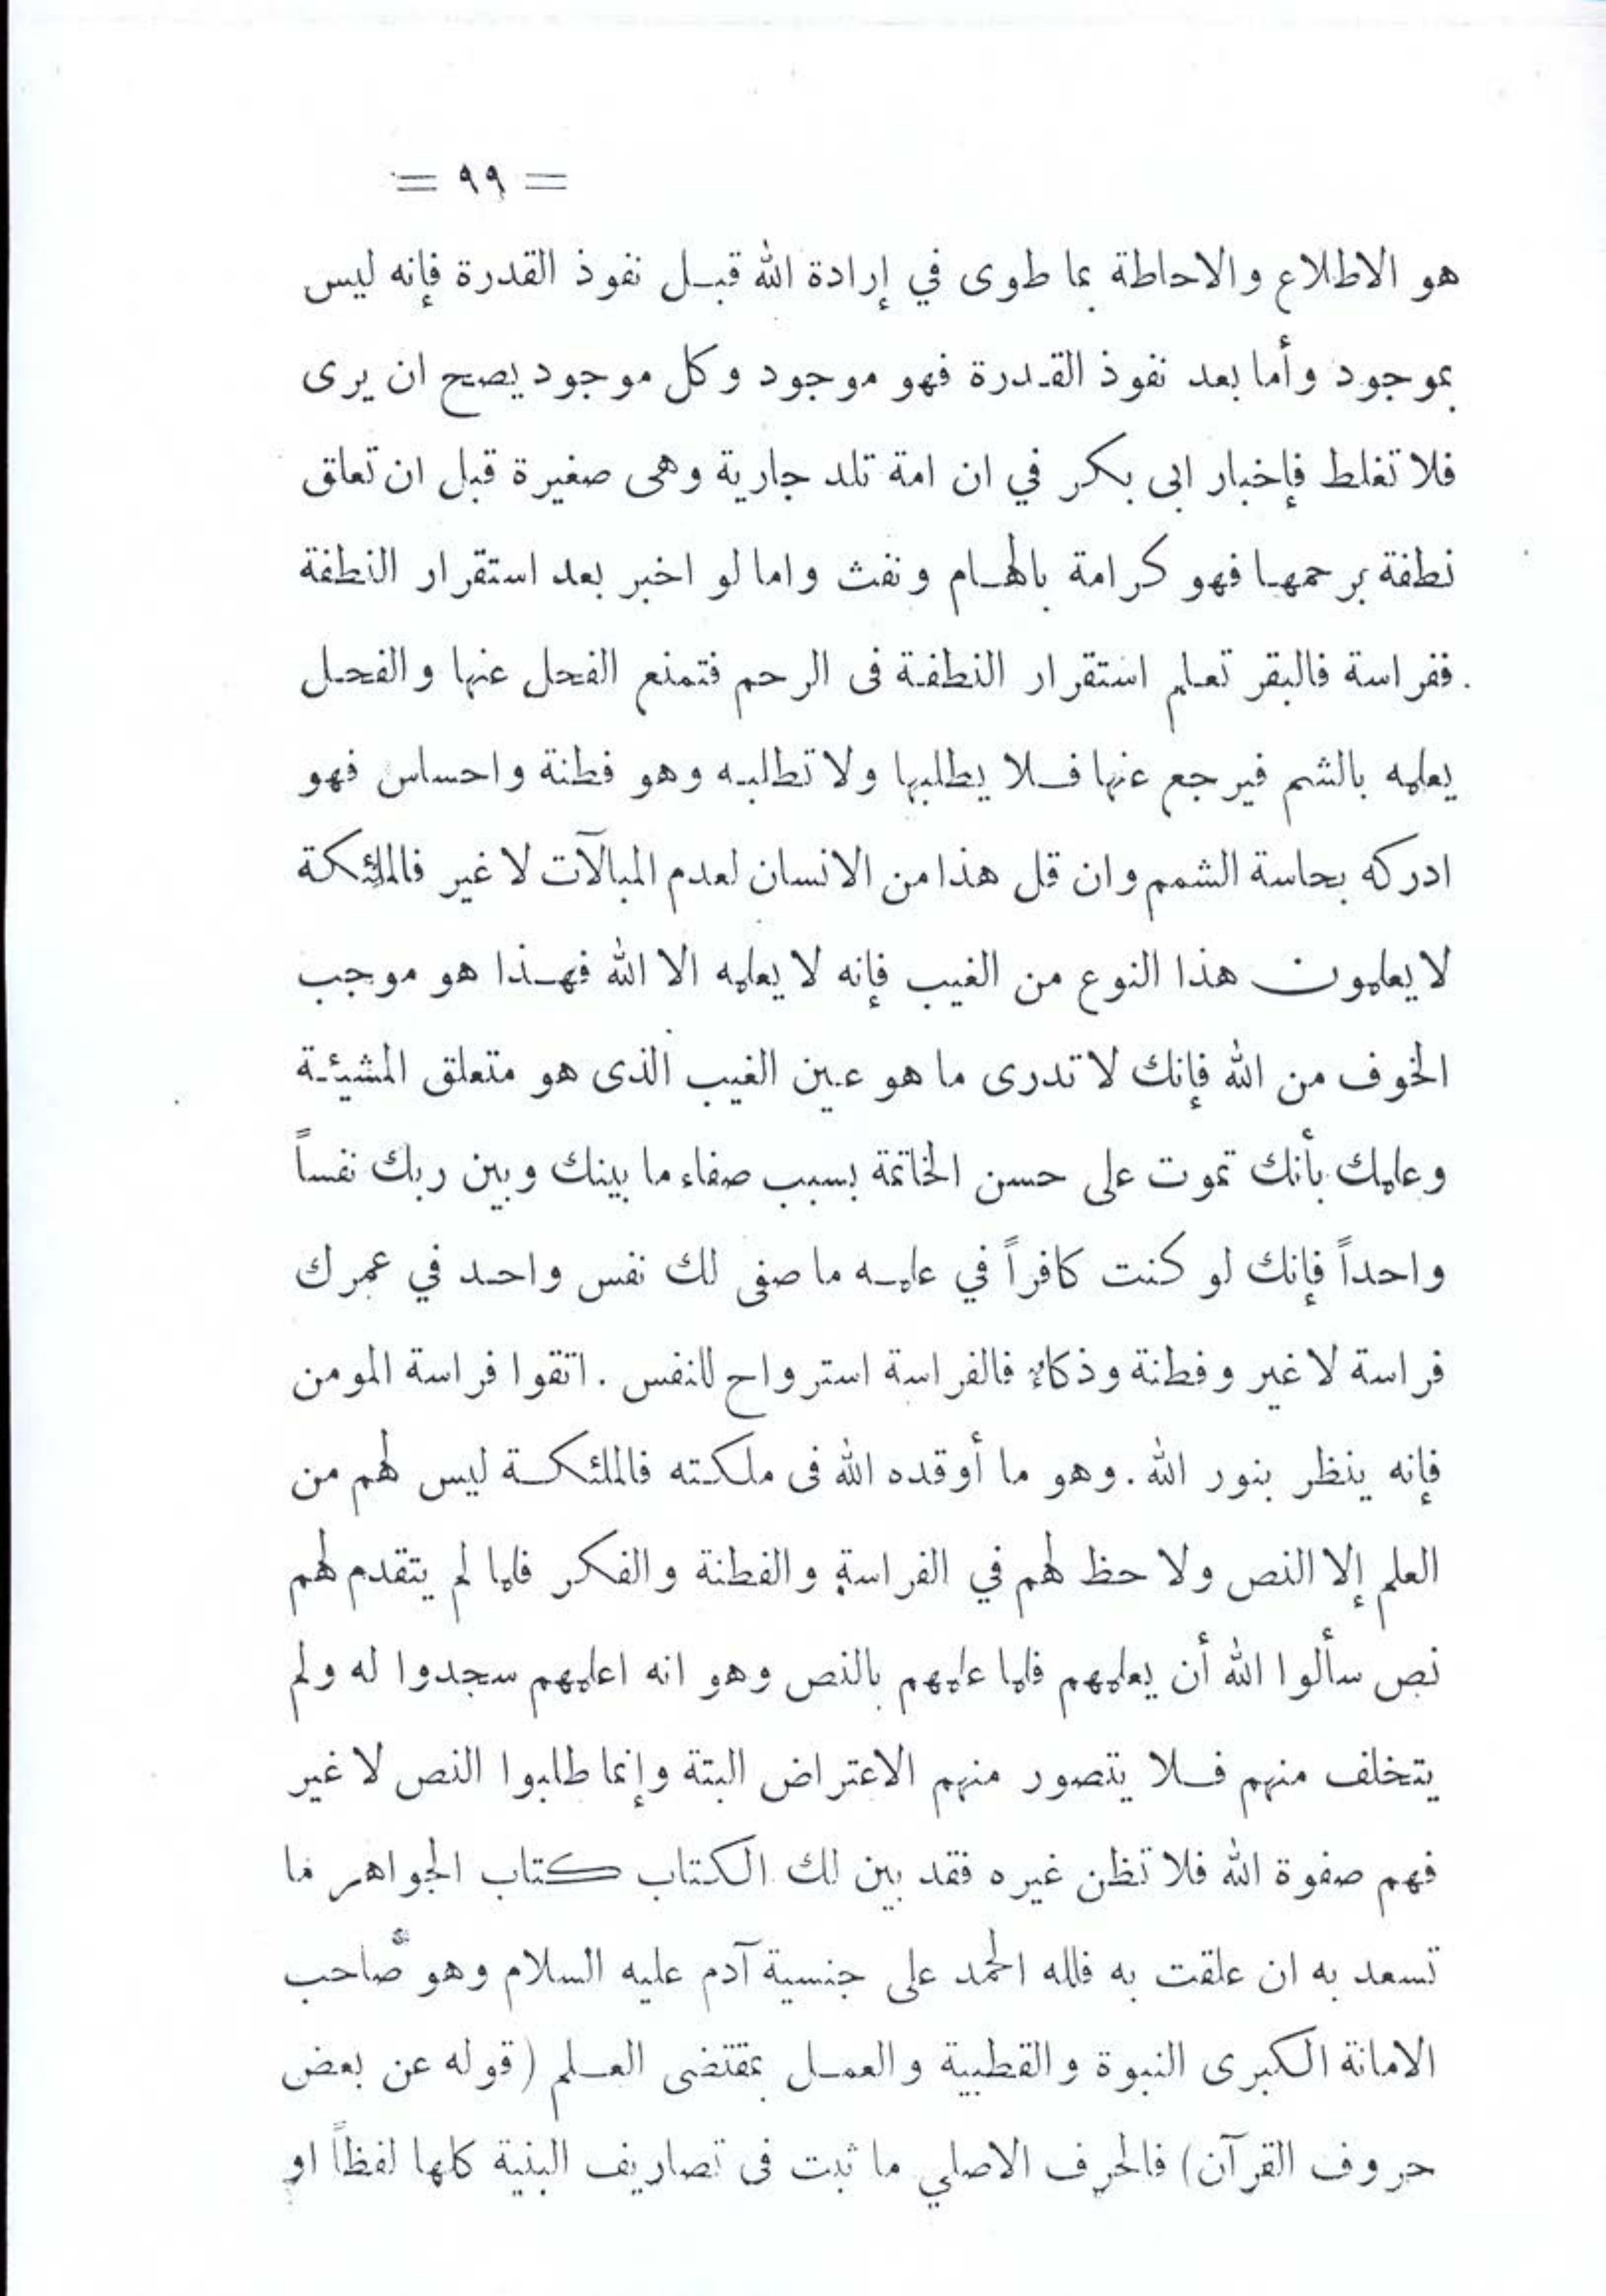 = ٩٩ =
هو الاطلاع والاحاطة بما طوى في إرادة الله قبل نفوذ القدرة فإنه ليس
بموجود وأما بعد نفوذ القدرة فهو موجود وكل موجود يصح ان يرى
فلا تغلط فإخبار ابى بكر في ان امة تلد جارية وهى صغيرة قبل ان تعلق
نطفة برحمها فهو كرامة بالهام ونفث واما لو اخبر بعد استقرار النطفة
ففراسة فالبقر تعلم استقرار النطفة فى الرحم فتمنع الفحل عنها والفحل
يعلمه بالشم فيرجع عنها فلا يطلبها ولا تطلبه وهو فطنة واحساس فهو
ادركه بحاسة الشمم وان قل هذا من الانسان لعدم المبالآت لا غير فالملئكة
لا يعلمون هذا النوع من الغيب فإنه لا يعلمه الا الله فهذا هو موجب
الخوف من الله فإنك لا تدرى ما هو عين الغيب الذى هو متعلق المشيئة
وعلمك بأنك تموت على حسن الخاتمة بسبب صفاء ما بينك وبين ربك نفساً
واحداً فإنك لو كنت كافراً في علمه ما صفى لك نفس واحد في عمرك
فراسة لا غير وفطنة وذكاء فالفراسة استرواح للنفس . اتقوا فراسة المومن
فإنه ينظر بنور الله . وهو ما أوقده الله فى ملكته فالملئكة ليس لهم من
العلم إلا النص ولا حظ لهم في الفراسة والفطنة والفكر فلما لم يتقدم لهم
نص سألوا الله أن يعلمهم فلما علمهم بالنص وهو انه اعلمهم سجدوا له ولم
يتخلف منهم فلا يتصور منهم الاعتراض البتة وإنما طلبوا النص لا غير
فهم صفوة الله فلا تظن غيره فقد بين لك الكتاب كتاب الجواهر ما
تسعد به ان علقت به فلله الحمد على جنسية آدم عليه السلام وهو صاحب
الامانة الكبرى النبوة والقطبية والعمل بمقتضى العلم (قوله عن بعض
حروف القرآن) فالحرف الاصلي ما ثبت فى تصاريف البنية كلها لفظاً او